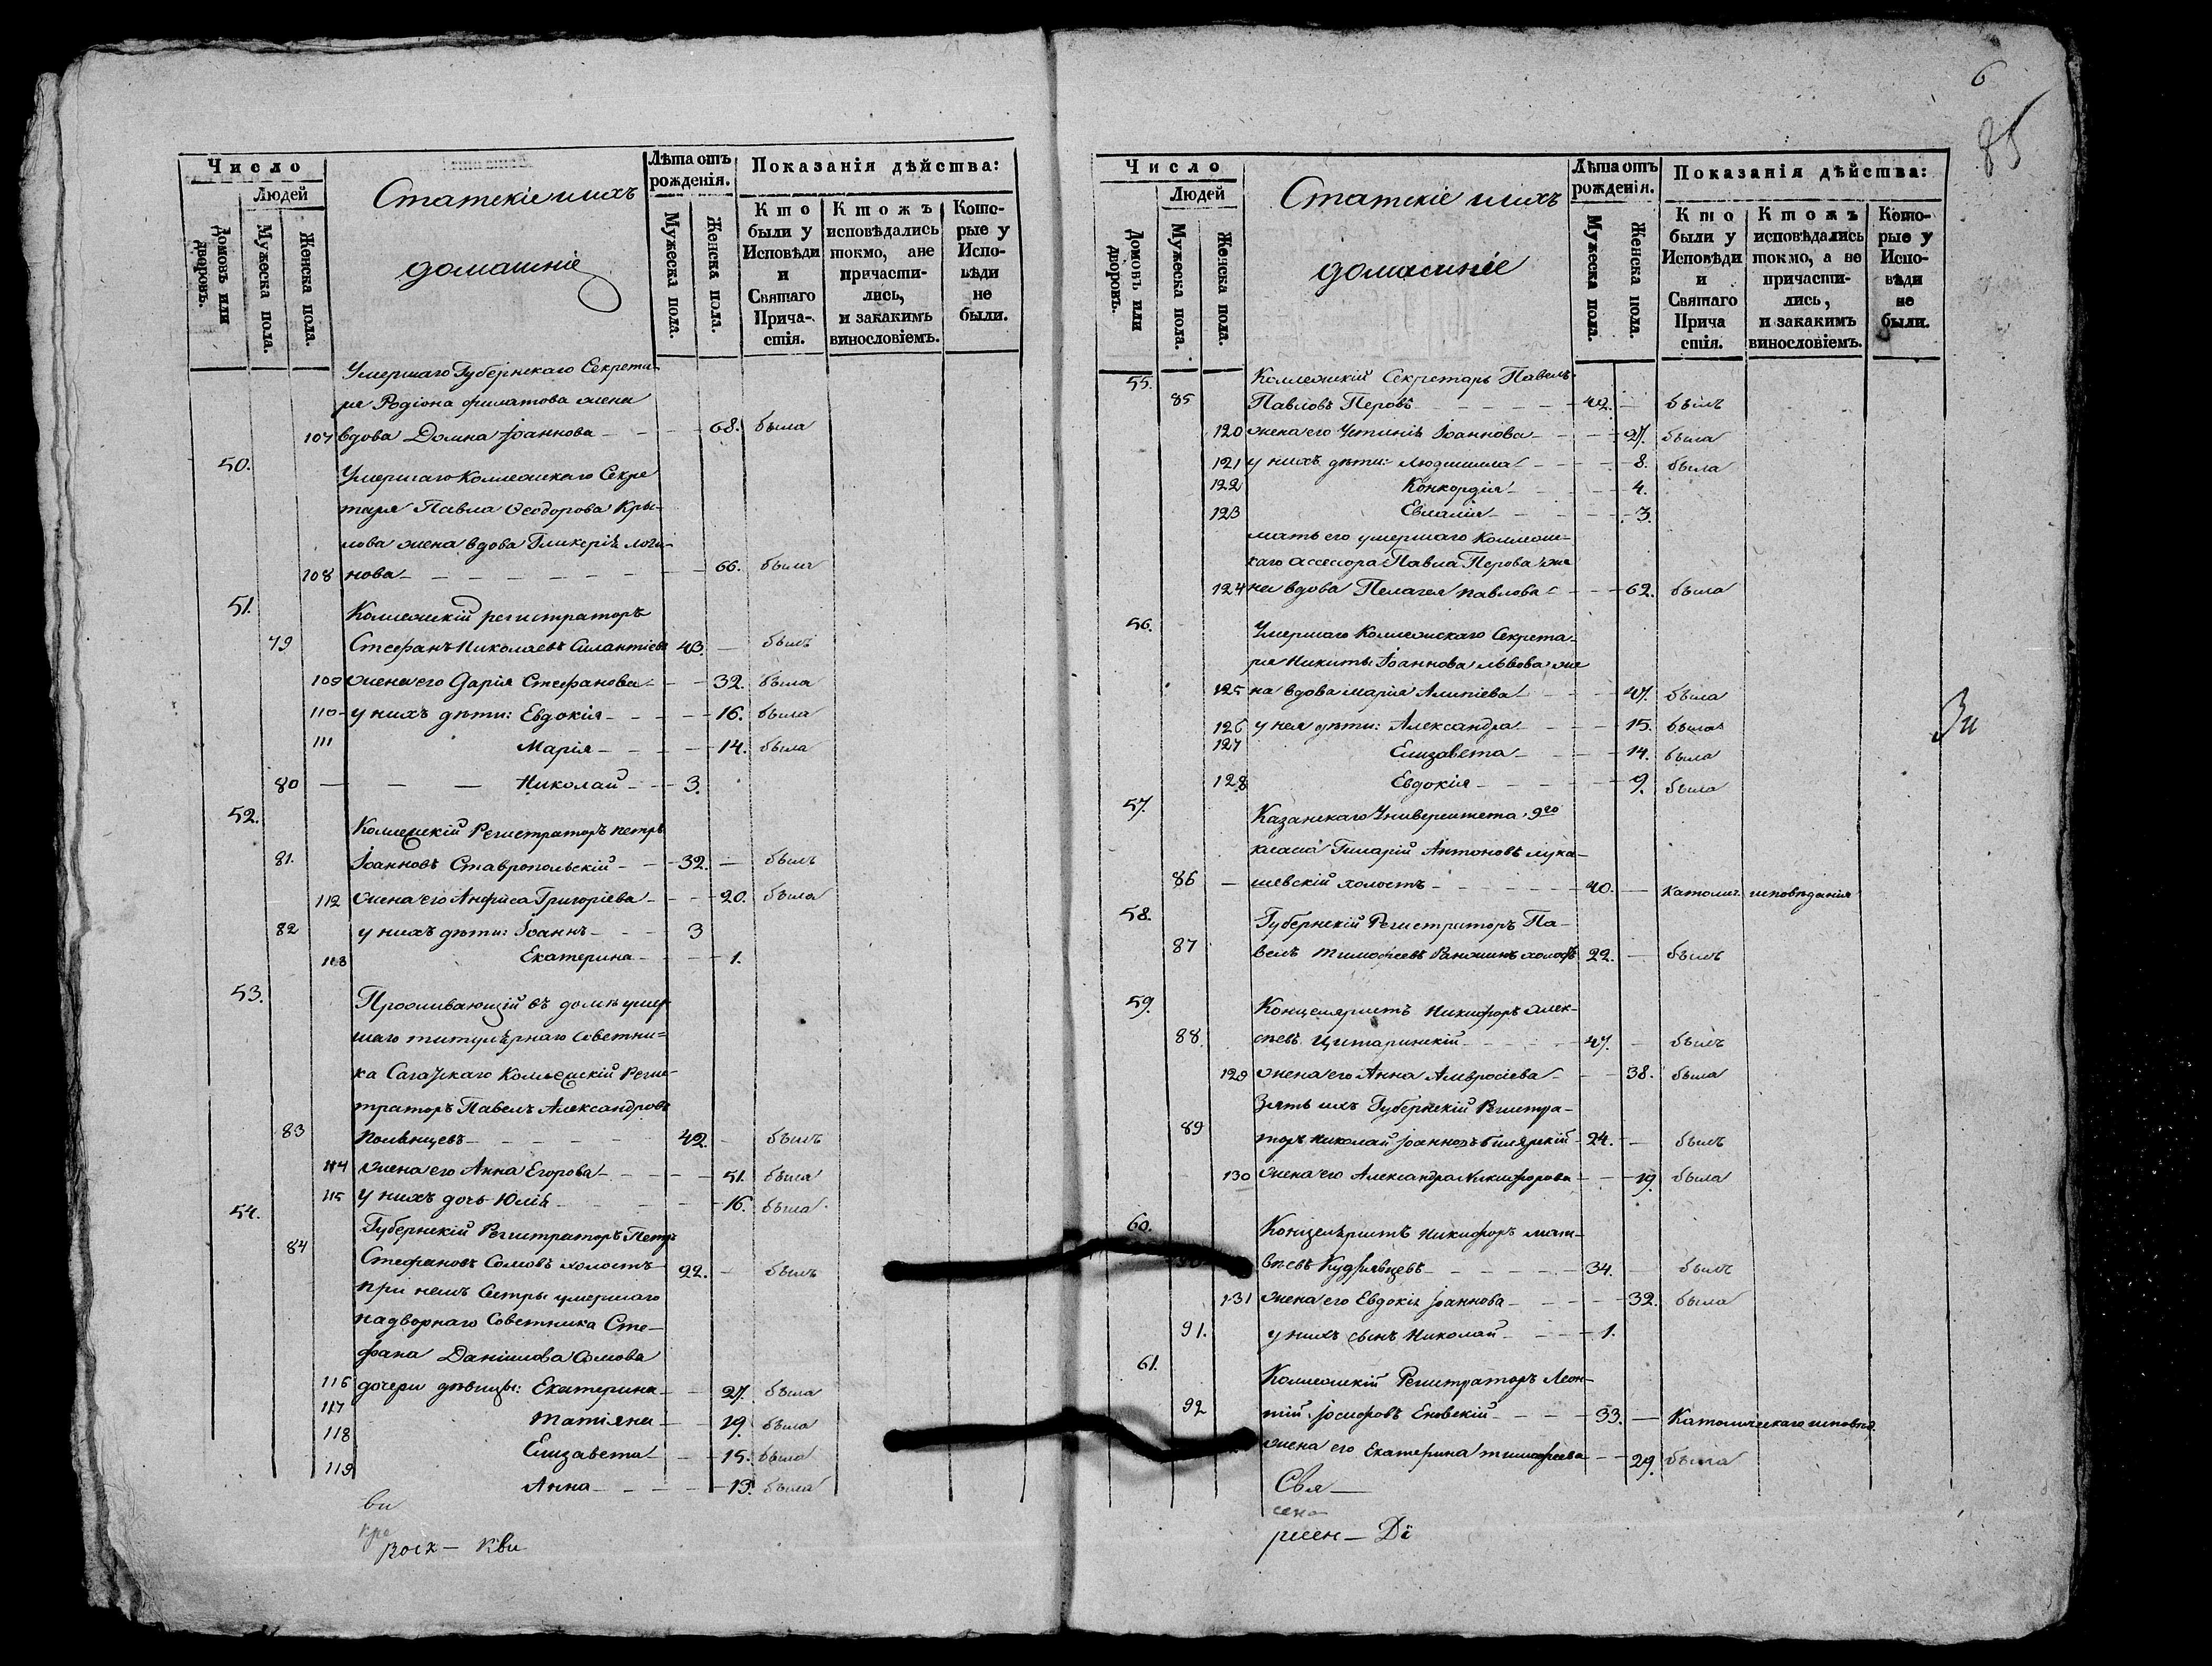 Число
Людей
Домовъ или дворовъ.
Мужеска пола.
Женска пола.
Статскіе и ихъ
домашніе
Лѣта отъ рожденія.
Мужеска пола.
Женска пола.
Показанія дѣйства:
Кто были у Исповѣди и Святаго Прича-стія.
Ктожъ исповѣдались токмо, а не причасти-лись, и закакимъ винословіемъ.
Кото-рые у Испо-вѣди не были.
Умершаго Губернскаго Секрета-
ря Родіона Филатова жена
107 вдова Домна Іоаннова 68. была
50. Умершаго Коллежскаго Секре
таря Павла Ѳеодорова Кры-
лова жена вдова Гликерія Логи-
108 нова 66. была
51. Коллежскій регистраторъ
79 Стефанъ Николаевъ Силантіевъ 43. былъ
109 жена его Дарія Стефанова 32. была
110 у нихъ дѣти: Евдокія 16. была
111 Марія 14. была
80 Николай 3.
52. Коллежскій Регистраторъ Петръ
81. Іоанновъ Ставропольскій 32. былъ
112 жена его Анфиса Григоріева 20. была
82 у нихъ дѣти: Іоаннъ 3
113 Екатерина 1.
53. Проживающій въ домѣ умер
шаго титулярнаго Советни=
ка Коллежскій Реги-
страторъ Павелъ Александровъ
83 42. былъ
114 жена его Анна Егорова 51. была
115 у нихъ дочь Юлія 16. была
54. Губернскій Регистраторъ Петръ
84 Стефановъ Сомовъ холостъ 22. былъ
при немъ Сестры умершаго
надворнаго Советника Сте-
фана Даніилова Сомова
116 дочери дѣвицы: Екатерина 27. была
117 Татіяна 19. была
118 Елизавета 15. была
119 Анна 13. была
6
85
Число
Людей
Домовъ или дворовъ.
Мужеска пола.
Женска пола.
Статскіе и ихъ
домашніе
Лѣта отъ рожденія.
Мужеска пола.
Женска пола.
Показанія дѣйства:
Кто были у Исповѣди и Святаго Прича стія.
Ктожъ исповѣдались токмо, а не причасти-лись, и закакимъ винословіемъ.
Кото-рые у Испо-вѣди не были.
55. Коллежскій Секретарь Павелъ
85 Павловъ Перовъ 42. былъ
120 жена его Іоаннова 27. была
121 у нихъ дѣти: Людмилла 8. была
122 Конкордія 4.
123 Евлалія 3.
мать его умершаго Коллеж-
скаго ассесора Павла Перова же
124 на вдова Пелагея Павлова 62. была
56. Умершаго Коллежскаго Секрета-
ря Никиты Іоаннова Львова же
125 на вдова Марія Алипіева 47. была
126 у нея дѣти: Александра 15. была
127 Елизавета 14. была
128 Евдокія 9. была
57. Казанскаго Университета 9го
класса Гиларій Антоновъ Лука-
86 шевскій холостъ 40. католич. исповѣданія
58. Губернскій Регистраторъ Па-
87 велъ Тимофеевъ холостъ 22. былъ
59. Концеляристъ Никифоръ Алек-
88. сѣевъ Цитаринскій 47. былъ
129 жена его Анна Амвросіева 38. была
Зять ихъ Губернскій Регистра-
89 торъ Николай Іоанновъ Билярскій 24. былъ
130 жена его Александра Никифорова 19. была
60. Концеляристъ Никифоръ Мат-
вѣевъ Кудрявцевъ 34. былъ
131 жена его Евдокія Іоаннова 32. была
91. у нихъ сынъ Николай 1.
61. Коллежскій Регистраторъ Леон-
92 тій Іосифовъ Еновскій 33. Католическаго исповѣд.
жена его Екатерина Тимофеева 29. была
Свя-